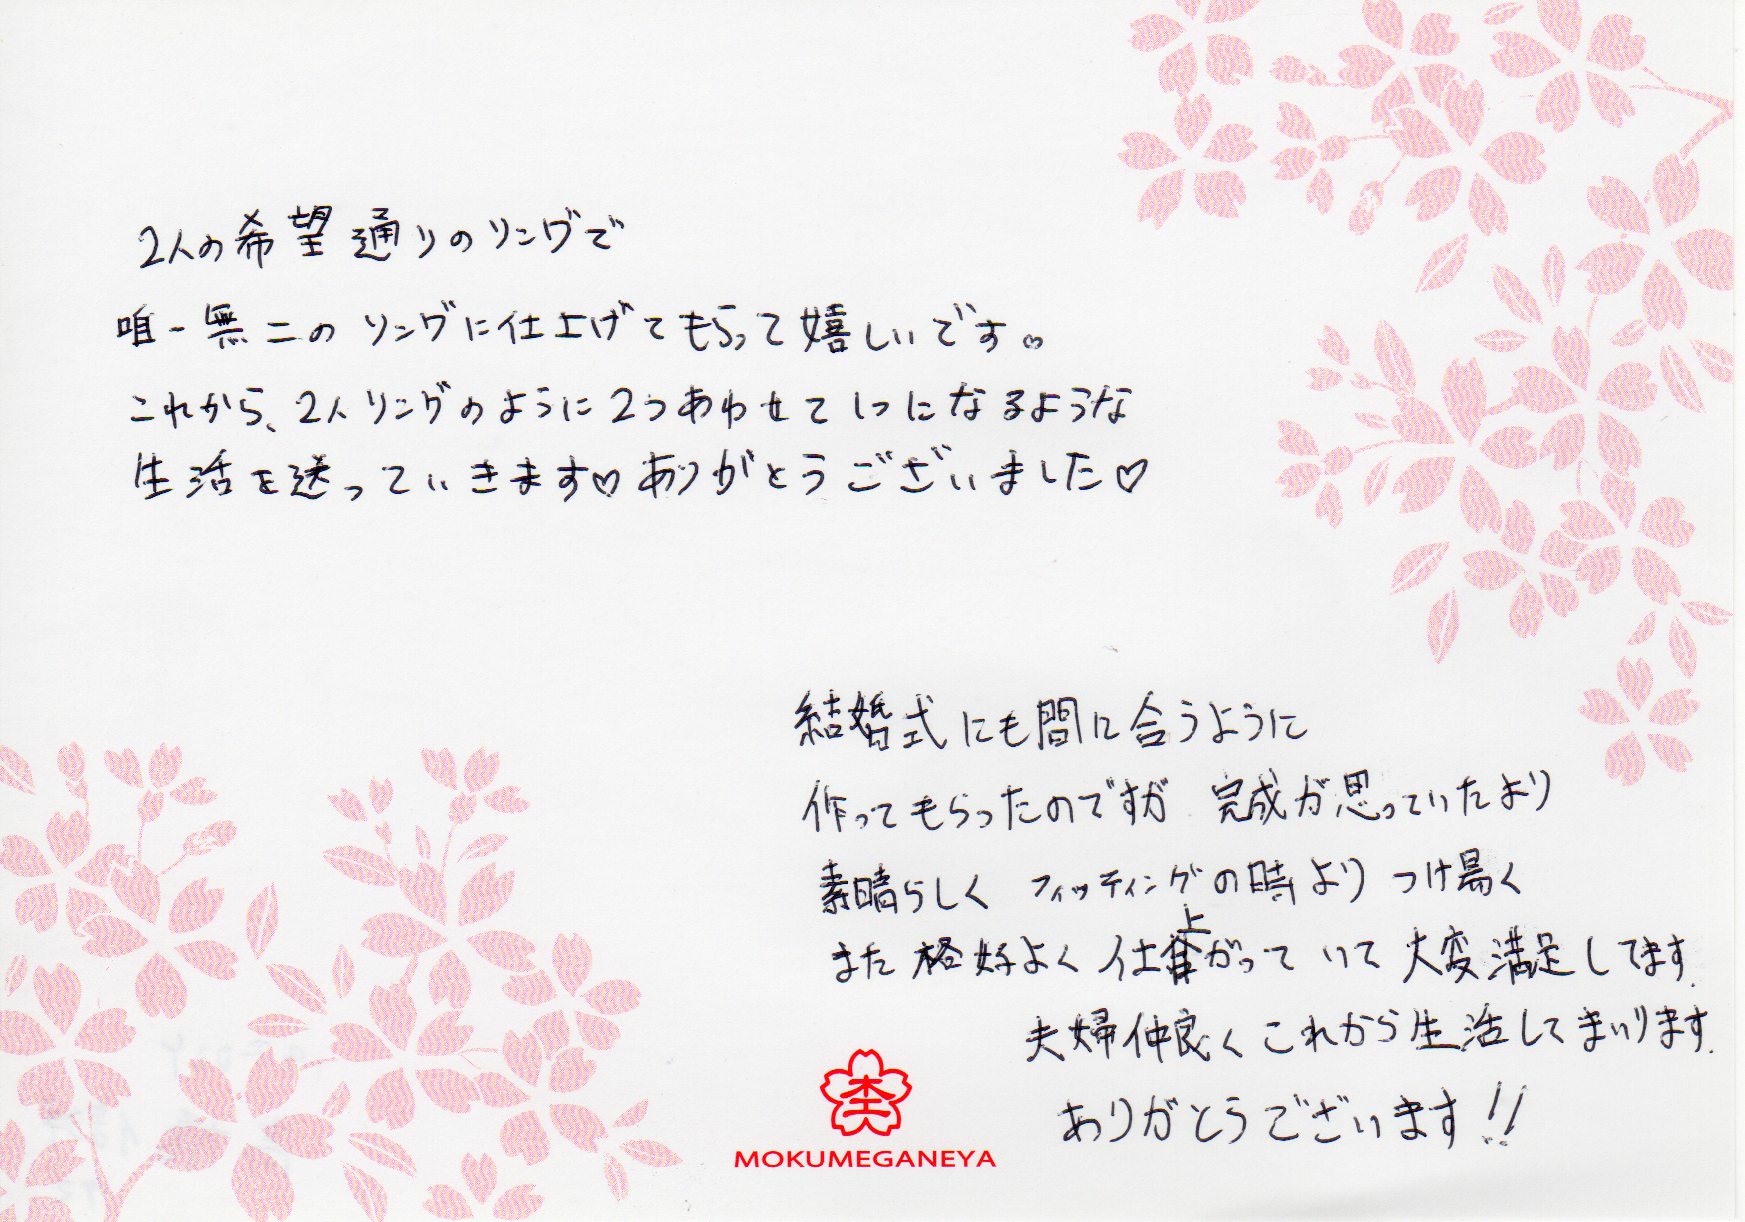 2人の希望通りのリングで
唯一無二のリングに仕上げてもらって嬉しいです。
これから、2人リングのように2つあわせて1つになるような
生活を送っていきます♡ありがとうございました♡
結婚式にも間に合うように
作ってもらったのですが 完成が思っていたより
素晴らしく フィッティングの時より つけ易く
また格好よく仕上がっていて大変満足してます.
夫婦仲良くこれから生活してまいります.
ありがとうございます!!
MOKUMEGANEYA